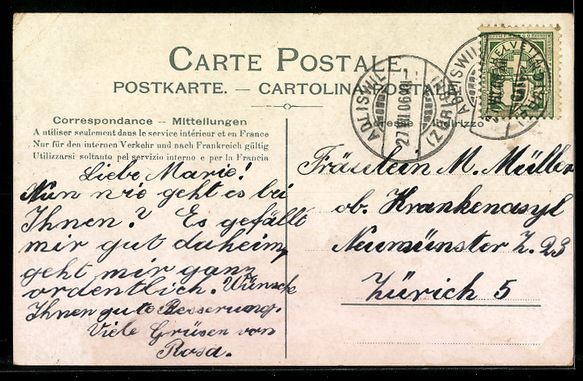 CARTE POSTALE
POSTKARTE. — CARTOLINA POSTALE
Correspondance — Mittellungen
A utiliser seulement dans le service intérieur et en France
Nur für den internen Verkehr und nach Frankreich gültig
Utilizzarsi soltanto pel servizio interno e per la Francia
Liebe Marie!
Nun wie geht es bei
Ihnen? Es gefällt
mir gut daheim,
geht mir ganz
ordentlich. Wünsche
Ihnen gute Besserung.
Viele Grüsen von
Rosa.
HELVETIA
ADLISWIL
(ZÜRICH)
ADLISWIL
Fräulein M. Müller
ob. Krankenasyl
Neumünster Z. 23
Zürich 5